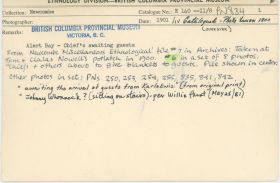 ETHNOLOGY DIVISION — BRITISH COLUMBIA PROVINCIAL MUSEUM
Collection: Newcombe
Photographer:
Date: 1901
BRITISH COLUMBIA PROVINCIAL MUSEUM
VICTORIA, B. C.
Alert Bay - Chief's awaiting guests
From Newcombe Miscellaneous Ethnological file #7 in Archives. Taken at
potlach in 1900. #6 in a set of 8 photos.
Chiefs + others about to give blankets to guests. Pile shown in center.
Other photos in set: PNs 250, 253, 254, 255, 835, 891, 892
"awaiting the arrival of guests from Karlekwis" (from original)
(sitting on stairs) - per Willie Hunt (May 25/81)